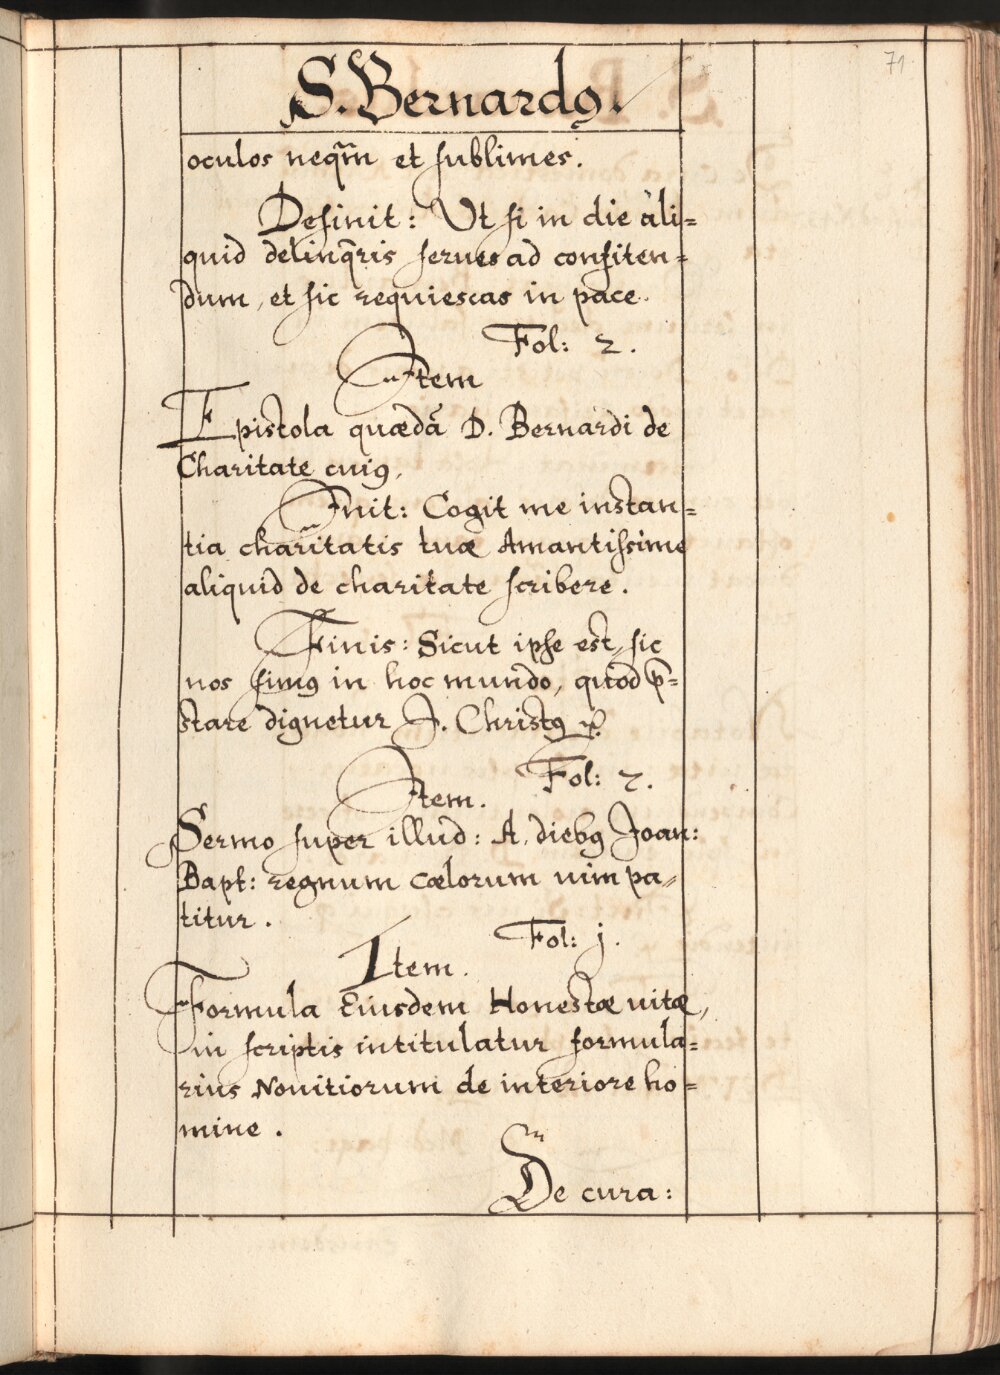 71
S. Bernardꝰ.
oculos neq̃m et sublimes.
Desinit: Ut si in die ali=
quid delinq̃ris serues ad confiten=
dum, et sic requiescas in pace.
Fol: 2.
Item
Epistola quædã D. Bernardi de
Charitate cuiꝰ,
Init: Cogit me instan=
tia charitatis tuæ Amantissime
aliquid de charitate scribere.
Finis: Sicut ipse est, sic
nos simꝰ in hoc mundo, quod p̃=
stare dignetur J. Christꝰ
Fol: 2.
Item.
Sermo super illud: A diebꝰ Joan:
Bapt: regnum cælorum uim pa=
titur.
Fol: j.
Item.
Formula Eiusdem Honestæ uitæ,
in scriptis intitulatur formula=
rius Nouitiorum de interiore ho=
mine.
De cura: